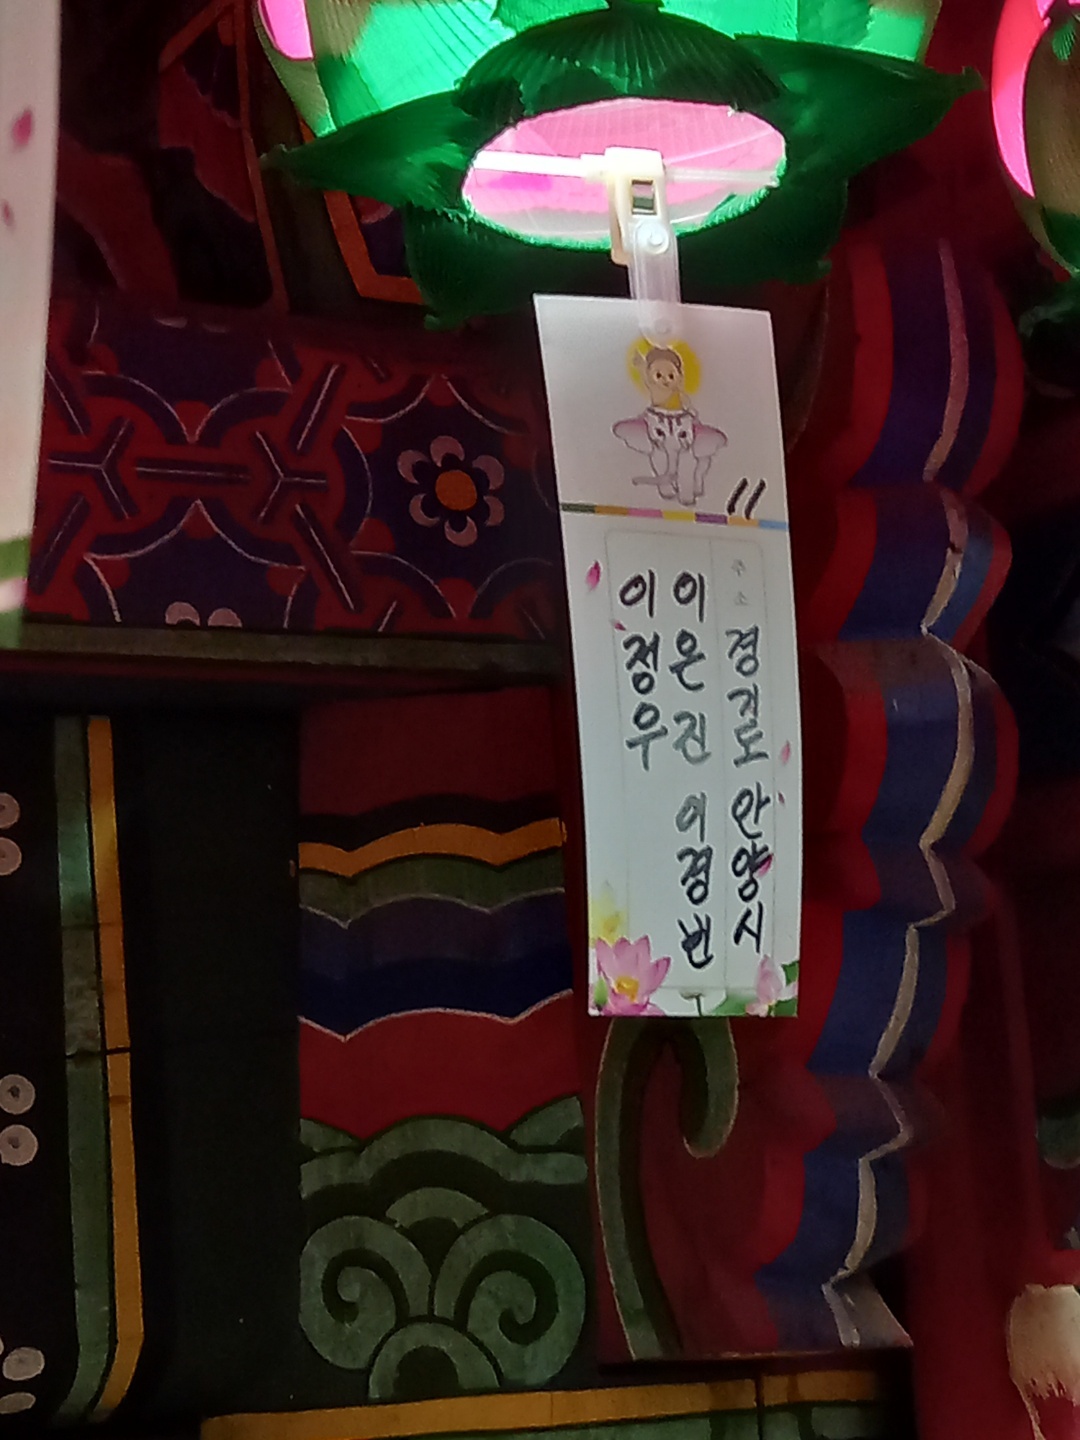 11
주소 경기도 안양시
이은진 이경빈
이정우